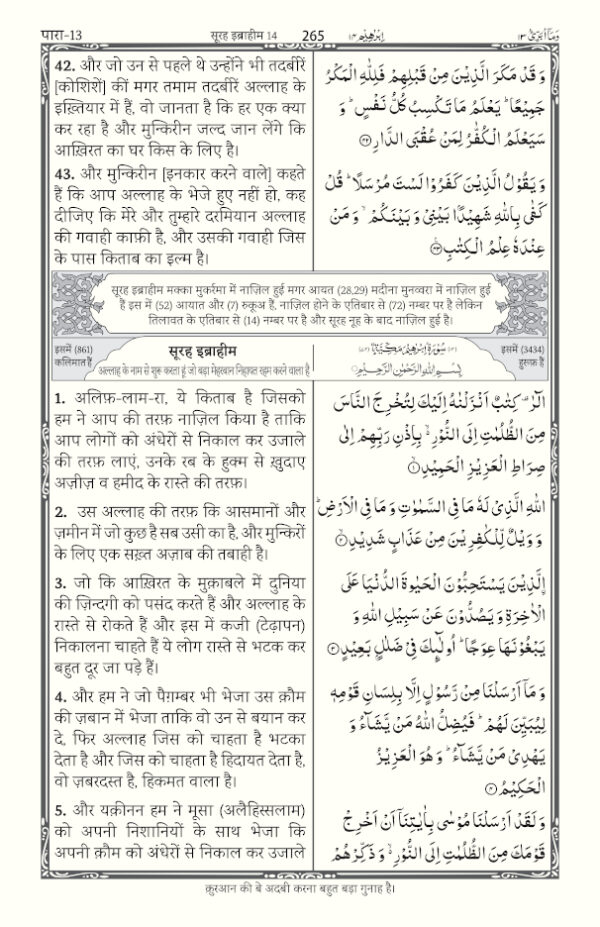 पारा-13 सूरह इब्राहीम 14 265 اِبْرٰهِيْم ١٤ وَمَآ اُبَرِّئُ ١٣
42. और जो उन से पहले थे उन्होंने भी तदबीरें
[कोशिशें] कीं मगर तमाम तदबीरें अल्लाह के
इख़्तियार में हैं, वो जानता है कि हर एक क्या
कर रहा है और मुन्किरीन जल्द जान लेंगे कि
आख़िरत का घर किस के लिए है।
43. और मुन्किरीन [इनकार करने वाले] कहते
हैं कि आप अल्लाह के भेजे हुए नहीं हो, कह
दीजिए कि मेरे और तुम्हारे दरमियान अल्लाह
की गवाही काफ़ी है, और उसकी गवाही जिस
के पास किताब का इल्म है।
وَ قَدْ مَكَرَ الَّذِيْنَ مِنْ قَبْلِهِمْ فَلِلّٰهِ الْمَكْرُ
جَمِيْعًا ؕ يَعْلَمُ مَا تَكْسِبُ كُلُّ نَفْسٍ ؕ وَ
سَيَعْلَمُ الْكُفّٰرُ لِمَنْ عُقْبَى الدَّارِ ۝۴۲
وَ يَقُوْلُ الَّذِيْنَ كَفَرُوْا لَسْتَ مُرْسَلًا ؕ قُلْ
كَفٰى بِاللّٰهِ شَهِيْدًۢا بَيْنِيْ وَ بَيْنَكُمْ ۙ وَ مَنْ
عِنْدَهٗ عِلْمُ الْكِتٰبِ ۝۴۳
सूरह इब्राहीम मक्का मुकर्रमा में नाज़िल हुई मगर आयत (28,29) मदीना मुनव्वरा में नाज़िल हुई
है इस में (52) आयात और (7) रुकूअ हैं, नाज़िल होने के एतिबार से (72) नम्बर पर है लेकिन
तिलावत के एतिबार से (14) नम्बर पर है और सूरह नूह के बाद नाज़िल हुई है।
इसमें (861)
कलिमात हैं
सूरह इब्राहीम
अल्लाह के नाम से शुरू करता हूं जो बड़ा मेहरबान निहायत रहम करने वाला है
سُوْرَةُ اِبْرٰهِيْمَ مَكِّيَّةٌ
بِسْمِ اللّٰهِ الرَّحْمٰنِ الرَّحِيْمِ
इसमें (3434)
हुरूफ़ हैं
1. अलिफ़-लाम-रा, ये किताब है जिसको
हम ने आप की तरफ़ नाज़िल किया है ताकि
आप लोगों को अंधेरों से निकाल कर उजाले
की तरफ़ लाएं, उनके रब के हुक्म से ख़ुदाए
अज़ीज़ व हमीद के रास्ते की तरफ़।
2. उस अल्लाह की तरफ़ कि आसमानों और
ज़मीन में जो कुछ है सब उसी का है, और मुन्किरों
के लिए एक सख़्त अज़ाब की तबाही है।
3. जो कि आख़िरत के मुक़ाबले में दुनिया
की ज़िन्दगी को पसंद करते हैं और अल्लाह के
रास्ते से रोकते हैं और इस में कजी (टेढ़ापन)
निकालना चाहते हैं ये लोग रास्ते से भटक कर
बहुत दूर जा पड़े हैं।
4. और हम ने जो पैग़म्बर भी भेजा उस क़ौम
की ज़बान में भेजा ताकि वो उन से बयान कर
दे, फिर अल्लाह जिस को चाहता है भटका
देता है और जिस को चाहता है हिदायत देता है,
वो ज़बरदस्त है, हिकमत वाला है।
5. और यक़ीनन हम ने मूसा (अलैहिस्सलाम)
को अपनी निशानियों के साथ भेजा कि
अपनी क़ौम को अंधेरों से निकाल कर उजाले
الٓرٰ ۫ كِتٰبٌ اَنْزَلْنٰهُ اِلَيْكَ لِتُخْرِجَ النَّاسَ
مِنَ الظُّلُمٰتِ اِلَى النُّوْرِ ۙ بِاِذْنِ رَبِّهِمْ اِلٰى
صِرَاطِ الْعَزِيْزِ الْحَمِيْدِ ۝۱
اللّٰهِ الَّذِيْ لَهٗ مَا فِي السَّمٰوٰتِ وَ مَا فِي الْاَرْضِ ؕ
وَ وَيْلٌ لِّلْكٰفِرِيْنَ مِنْ عَذَابٍ شَدِيْدِ ۝۲
ۨالَّذِيْنَ يَسْتَحِبُّوْنَ الْحَيٰوةَ الدُّنْيَا عَلَى
الْاٰخِرَةِ وَ يَصُدُّوْنَ عَنْ سَبِيْلِ اللّٰهِ وَ
يَبْغُوْنَهَا عِوَجًا ؕ اُولٰٓئِكَ فِيْ ضَلٰلٍۭ بَعِيْدٍ ۝۳
وَ مَاۤ اَرْسَلْنَا مِنْ رَّسُوْلٍ اِلَّا بِلِسَانِ قَوْمِهٖ
لِيُبَيِّنَ لَهُمْ ؕ فَيُضِلُّ اللّٰهُ مَنْ يَّشَآءُ وَ
يَهْدِيْ مَنْ يَّشَآءُ ؕ وَ هُوَ الْعَزِيْزُ
الْحَكِيْمُ ۝۴
وَ لَقَدْ اَرْسَلْنَا مُوْسٰى بِاٰيٰتِنَاۤ اَنْ اَخْرِجْ
قَوْمَكَ مِنَ الظُّلُمٰتِ اِلَى النُّوْرِ ۙ وَ ذَكِّرْهُمْ
क़ुरआन की बे अदबी करना बहुत बड़ा गुनाह है।